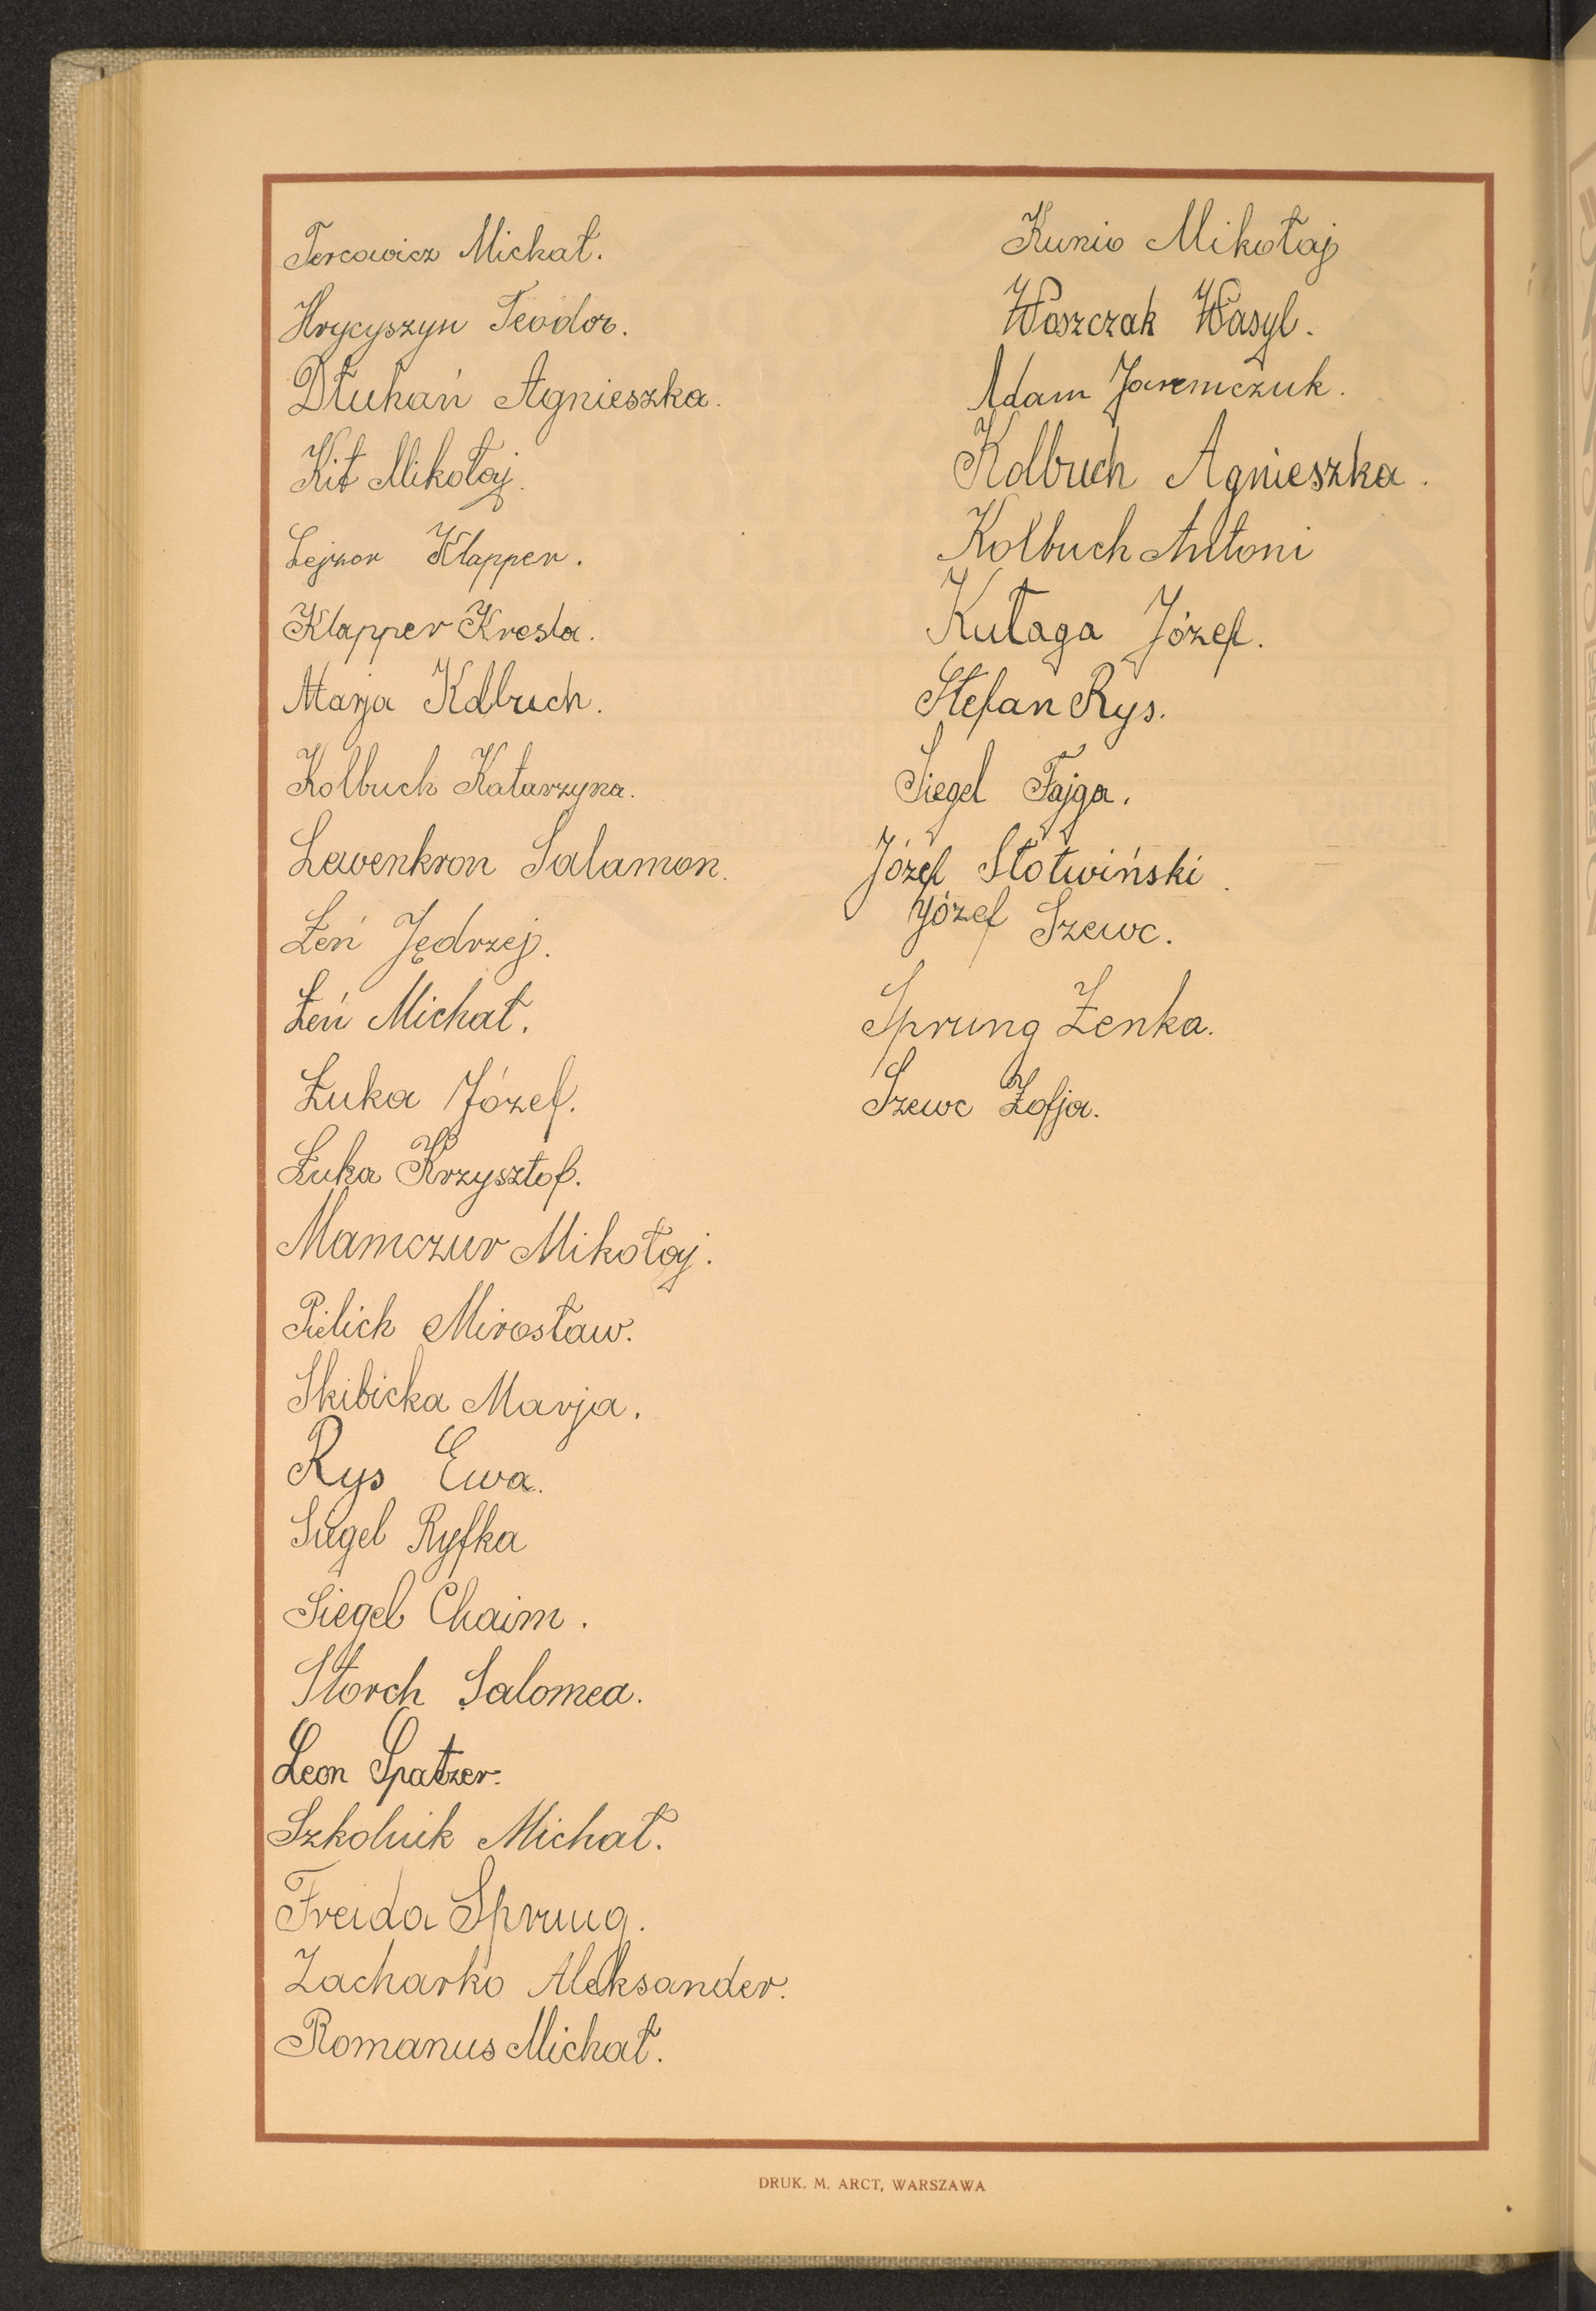 Tercowicz Michał.
Hrycyszyn Teodor.
Dłuhań Agnieszka.
Kit Mikołaj.
Lejzor Klapper.
Klapper Kresla.
Marja Kolbuch.
Kolbuch Katarzyna.
Lewenkron Salamon.
Łeń Jędrzej.
Łeń Michał.
Łuka Józef.
Łuka Krzysztof.
Mamczur Mikołaj.
Pielich Mirosław.
Skibicka Marja.
Rys Ewa.
Siegel Ryfka
Siegel Chaim.
Storch Salomea.
Leon Spatzer.
Szkolnik Michał.
Freida Sprung.
Zacharko Aleksander.
Romanus Michał.
Kunio Mikołaj
Woszczak Wasyl.
Adam Jaremczuk.
Kolbuch Agnieszka.
Kolbuch Antoni
Kułaga Józef.
Stefan Rys.
Siegel Fajga.
Józef Słotwiński.
Józef Szewc.
Sprung Zenka.
Szewc Zofja.
DRUK. M. ARCT, WARSZAWA